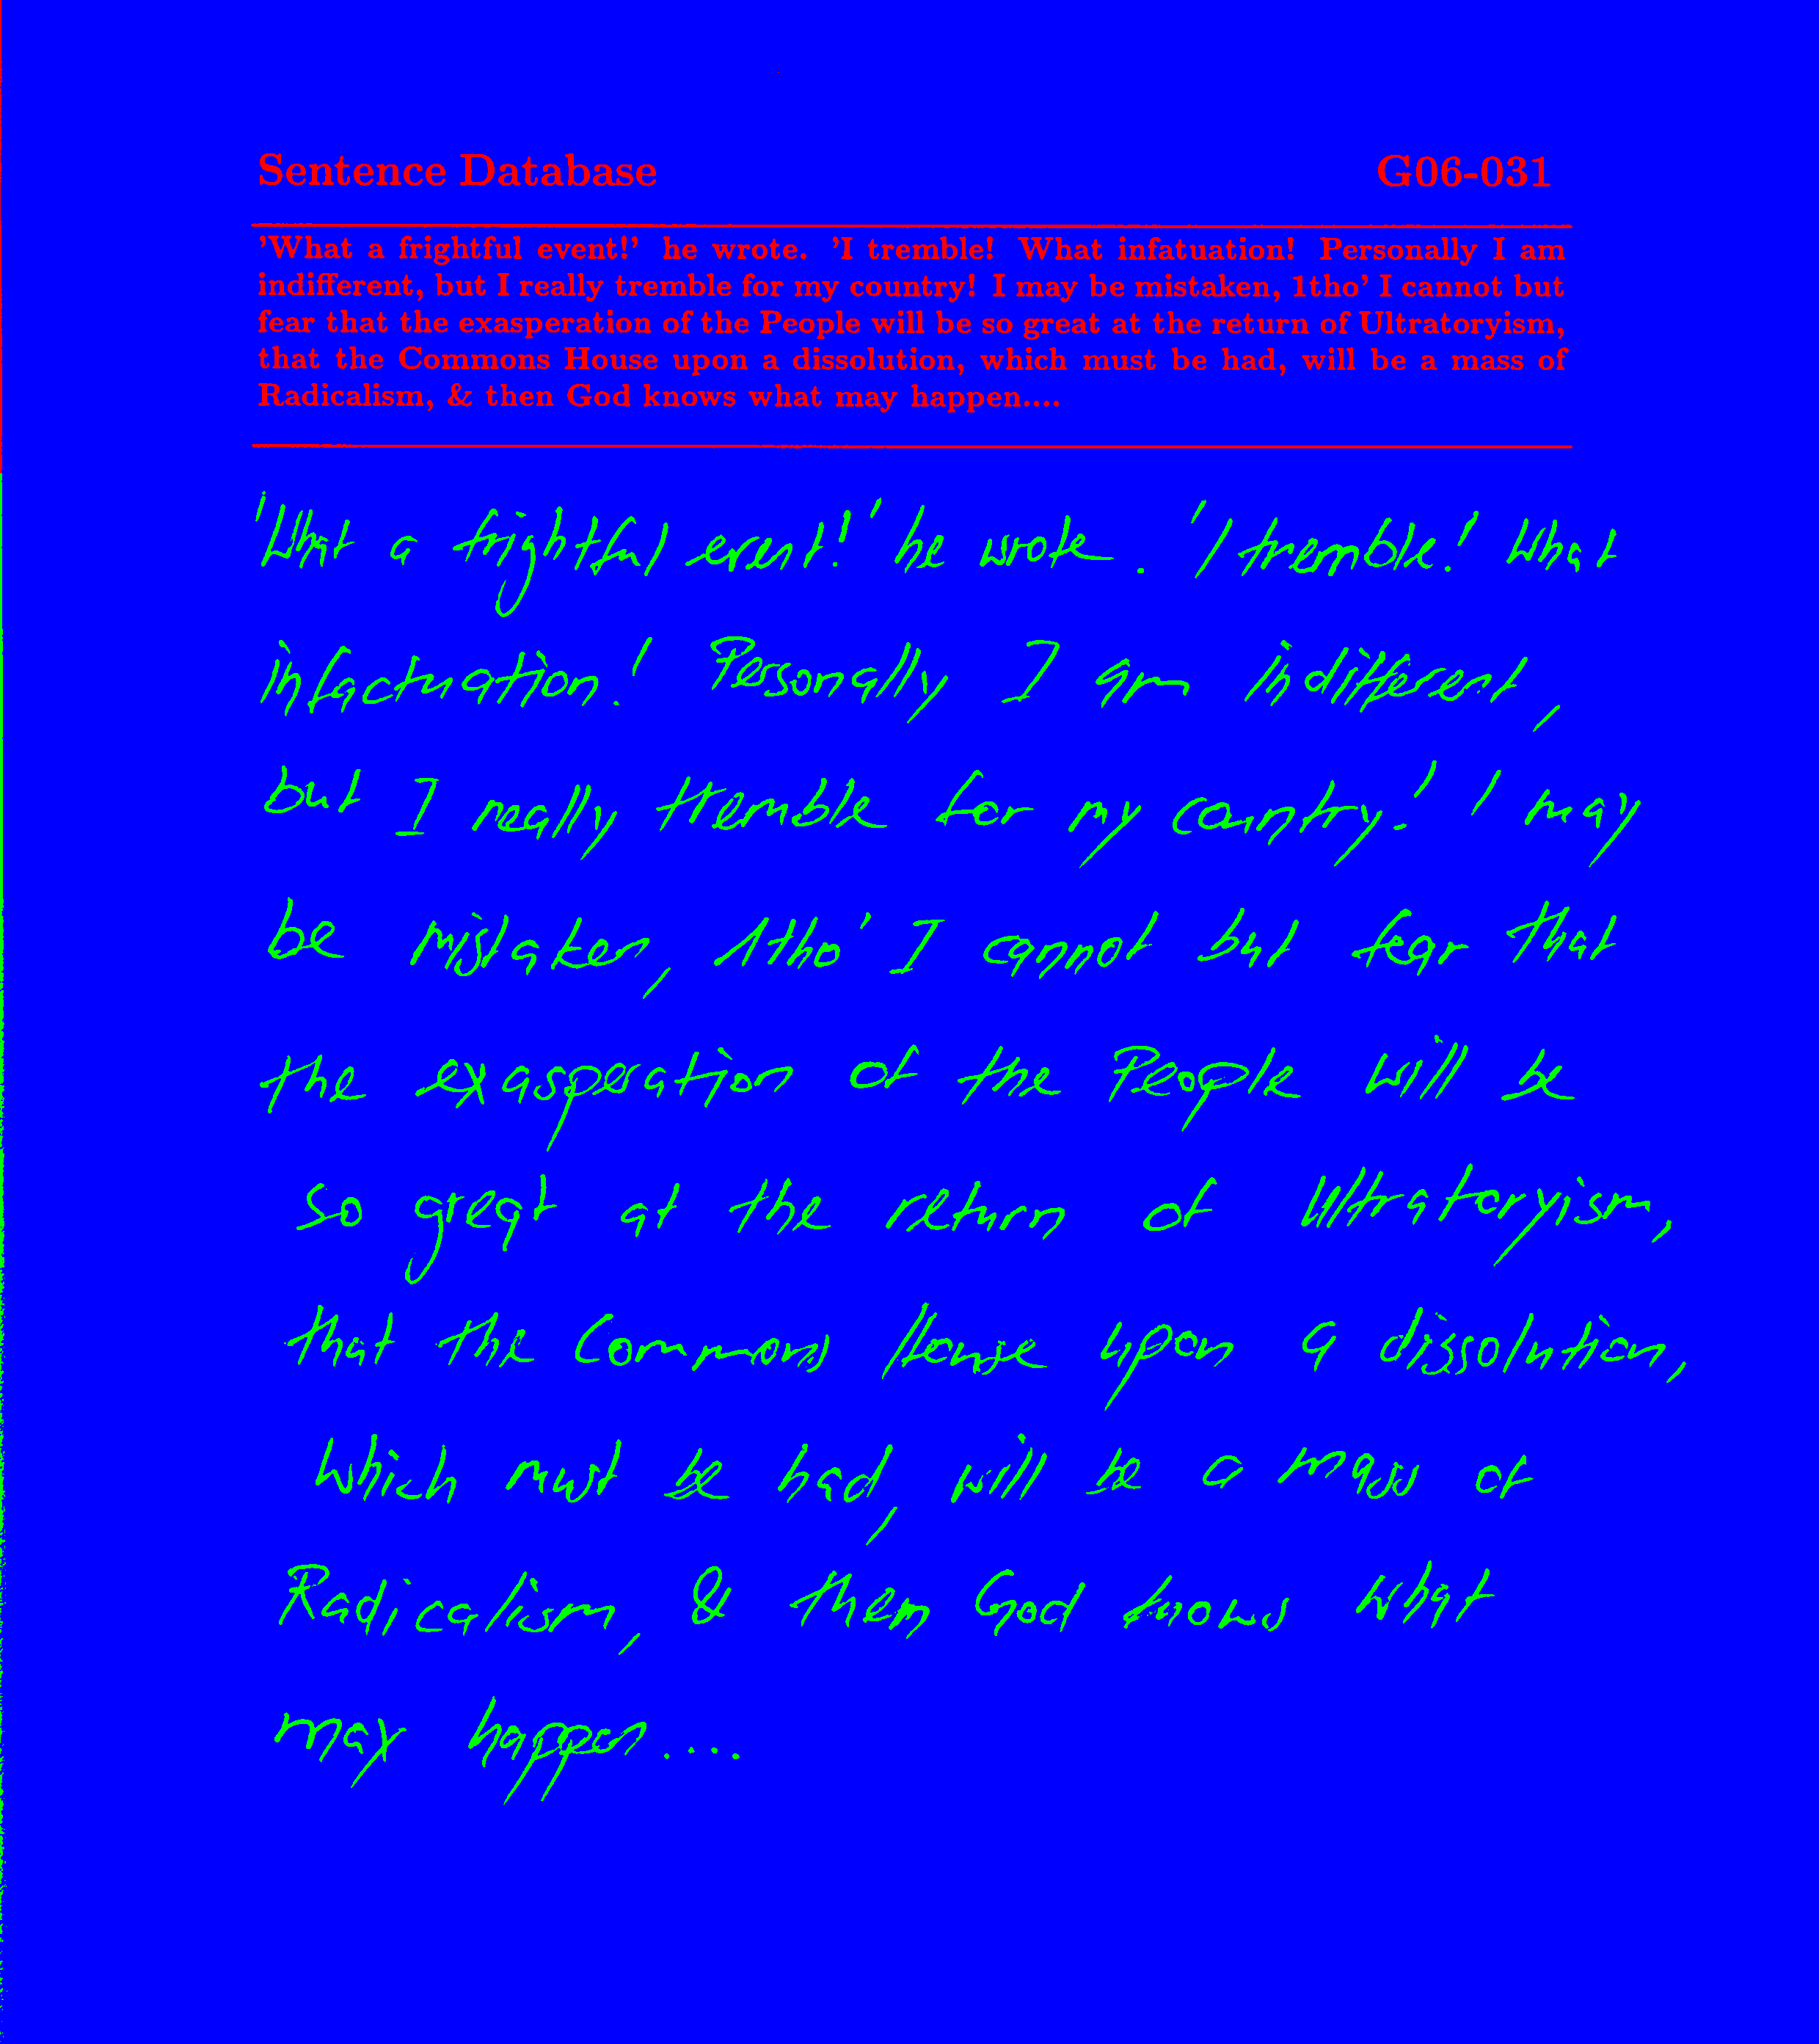 Sentence Database G06-031
'What a frightful event!' he wrote. 'I tremble! What infatuation! Personally I am
indifferent, but I really tremble for my country! I may be mistaken, 1tho' I cannot but
fear that the exasperation of the People will be so great at the return of Ultratoryism,
that the Commons House upon a dissolution, which must be had, will be a mass of
Radicalism, & then God knows what may happen....
'What a frightful event!' he wrote. 'I tremble! What
infactuation! Personally I am indifferent,
but I really tremble for my country! I may
be mistaken, 1tho' I cannot but fear that
the exasperation of the People will be
so great at the return of Ultratoryism,
that the Commons House upon a dissolution,
which must be had, will be a mass of
Radicalism, & then God knows what
may happen....